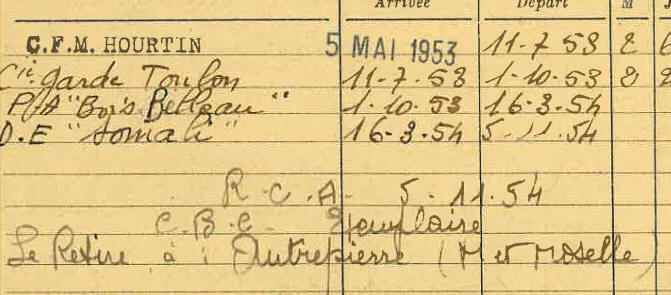 Arrivée Départ M
C.F.M. HOURTIN 5 MAI 1953 11-7-53 2
Cie garde Toulon 11-7-53 1-10-53 2
P/A "Bois Belleau" 1-10-53 16-3-54
D.E "Somali" 16-3-54 5-11-54
R-C-A- 5-11-54
C.B.C. Exemplaire
Se Retire à : Autrepierre (M et Moselle)